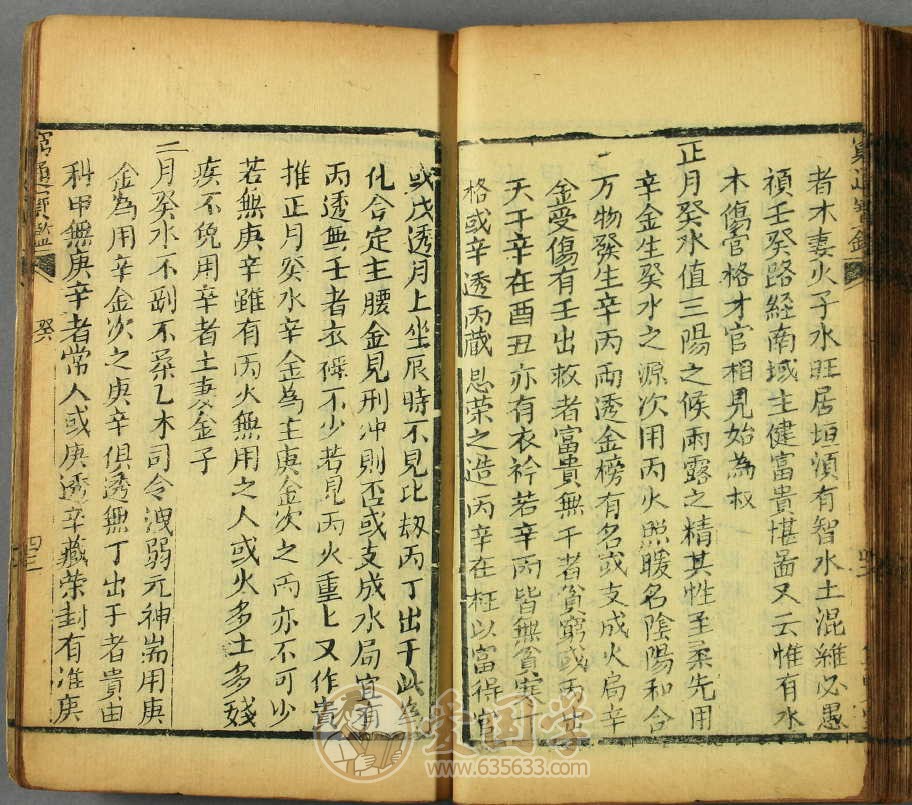 者木妻火子水旺居垣湏有智水土混雜必愚
湏壬癸路經南域主健富貴堪啚又云惟有水
木傷官格才官相見始為权
正月癸水值三陽之候雨露之精其性至柔先用
辛金生癸水之源次用丙火照暖名陰陽和合
万物發生辛丙兩透金榜有名或支成火局辛
金受傷有壬出救者富貴無壬者貧窮或丙出
天干辛在酉丑亦有衣衿若辛丙皆無貧寒
格或辛透丙藏恩荣之造丙辛在柱以富得官
或戊透月上坐辰時不見比刼丙丁出干此為
化合定主腰金見刑冲則否或支成水局宜有
丙透無壬者衣祿不少若見丙火重乚又作貴
推正月癸水辛金為主庚金次之丙亦不可少
若無庚辛雖有丙火無用之人或火多土多殘
疾不免用辛者土妻金子
二月癸水不剛不柔乙木司令洩弱元神耑用庚
金為用辛金次之庚辛俱透無丁出干者貴由
科甲無庚辛者常人或庚透辛藏荣封有准庚
窮通寳鑑
癸
四三
爱国学
www.635633.com